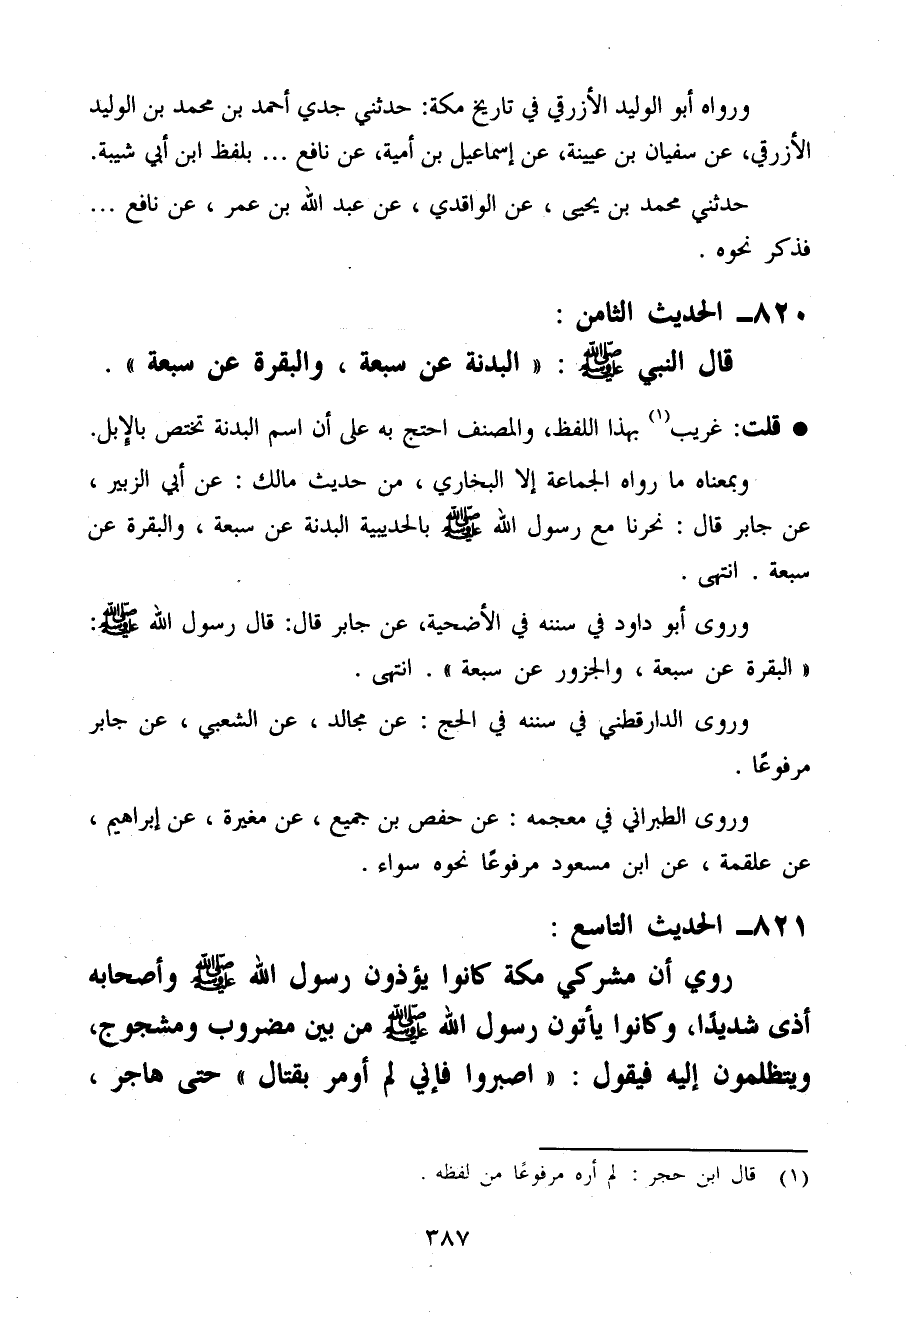 ورواه أبو الوليد الأزرقي في تاريخ مكة: حدثني جدي أحمد بن محمد بن الوليد
الأزرقي، عن سفيان بن عيينة، عن إسماعيل بن أمية، عن نافع ... بلفظ ابن أبي شيبة.
حدثني محمد بن يحيى ، عن الواقدي ، عن عبد الله بن عمر ، عن نافع ...
فذكر نحوه .
٨٢٠ـ الحديث الثامن :
قال النبي ﷺ : « البدنة عن سبعة ، والبقرة عن سبعة » .
● قلت: غريب(١) بهذا اللفظ، والمصنف احتج به على أن اسم البدنة تختص بالإبل.
وبمعناه ما رواه الجماعة إلا البخاري ، من حديث مالك : عن أبي الزبير ،
عن جابر قال : نحرنا مع رسول الله ﷺ بالحديبية البدنة عن سبعة ، والبقرة عن
سبعة . انتهى .
وروى أبو داود في سننه في الأضحية، عن جابر قال: قال رسول الله ﷺ:
« البقرة عن سبعة ، والجزور عن سبعة » . انتهى .
وروى الدارقطني في سننه في الحج : عن مجالد ، عن الشعبي ، عن جابر
مرفوعًا .
وروى الطبراني في معجمه : عن حفص بن جميع ، عن مغيرة ، عن إبراهيم ،
عن علقمة ، عن ابن مسعود مرفوعًا نحوه سواء .
٨٢١ـ الحديث التاسع :
روي أن مشركي مكة كانوا يؤذون رسول الله ﷺ وأصحابه
أذى شديدًا، وكانوا يأتون رسول الله ﷺ من بين مضروب ومشجوج،
ويتظلمون إليه فيقول : « اصبروا فإني لم أومر بقتال » حتى هاجر ،
(١) قال ابن حجر : لم أره مرفوعًا من لفظه .
٣٨٧